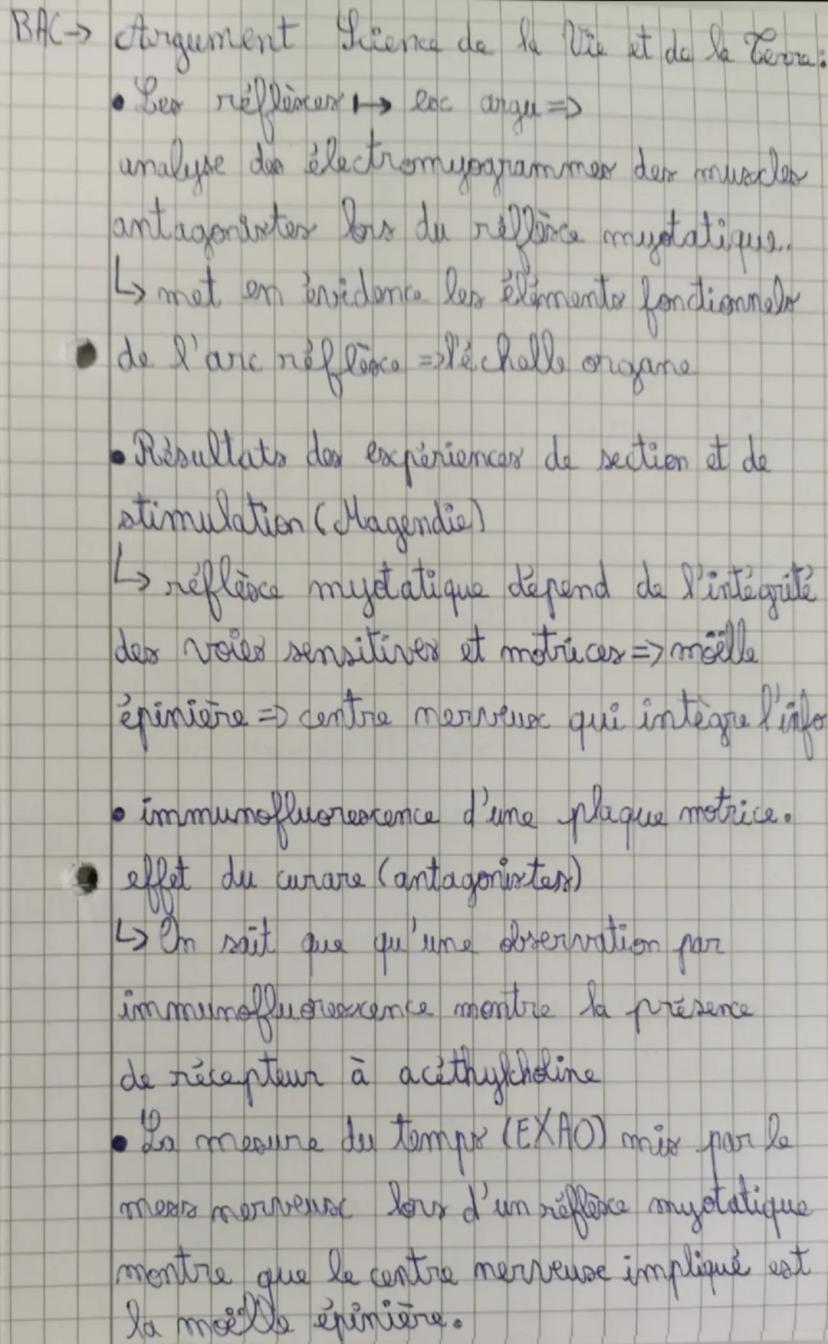 BAC→ Argument Science de la Vie et de la Terre:
• Les réflèxes ↦ exc argu =>
analyse des électromyogrammes des muscles
antagonistes lors du réflèxe myotatique.
↳ met en évidence les éléments fonctionnels
de l'arc réflèxe => l'échelle organe
• Résultats des expériences de section et de
stimulation (Magendie)
↳ réflèxe myotatique dépend de l'intégrité
des voies sensitives et motrices => moëlle
épinière => centre nerveux qui intègre l'info
• immunofluorescence d'une plaque motrice.
effet du curare (antagonistes)
↳ On sait que qu'une observation par
immunofluorescence montre la présence
de récepteur à acéthylcholine
• La mesure du temps (EXAO) mis par le
mess nerveux lors d'un réflèxe myotatique
montre que le centre nerveuse impliqué est
la moëlle épinière.